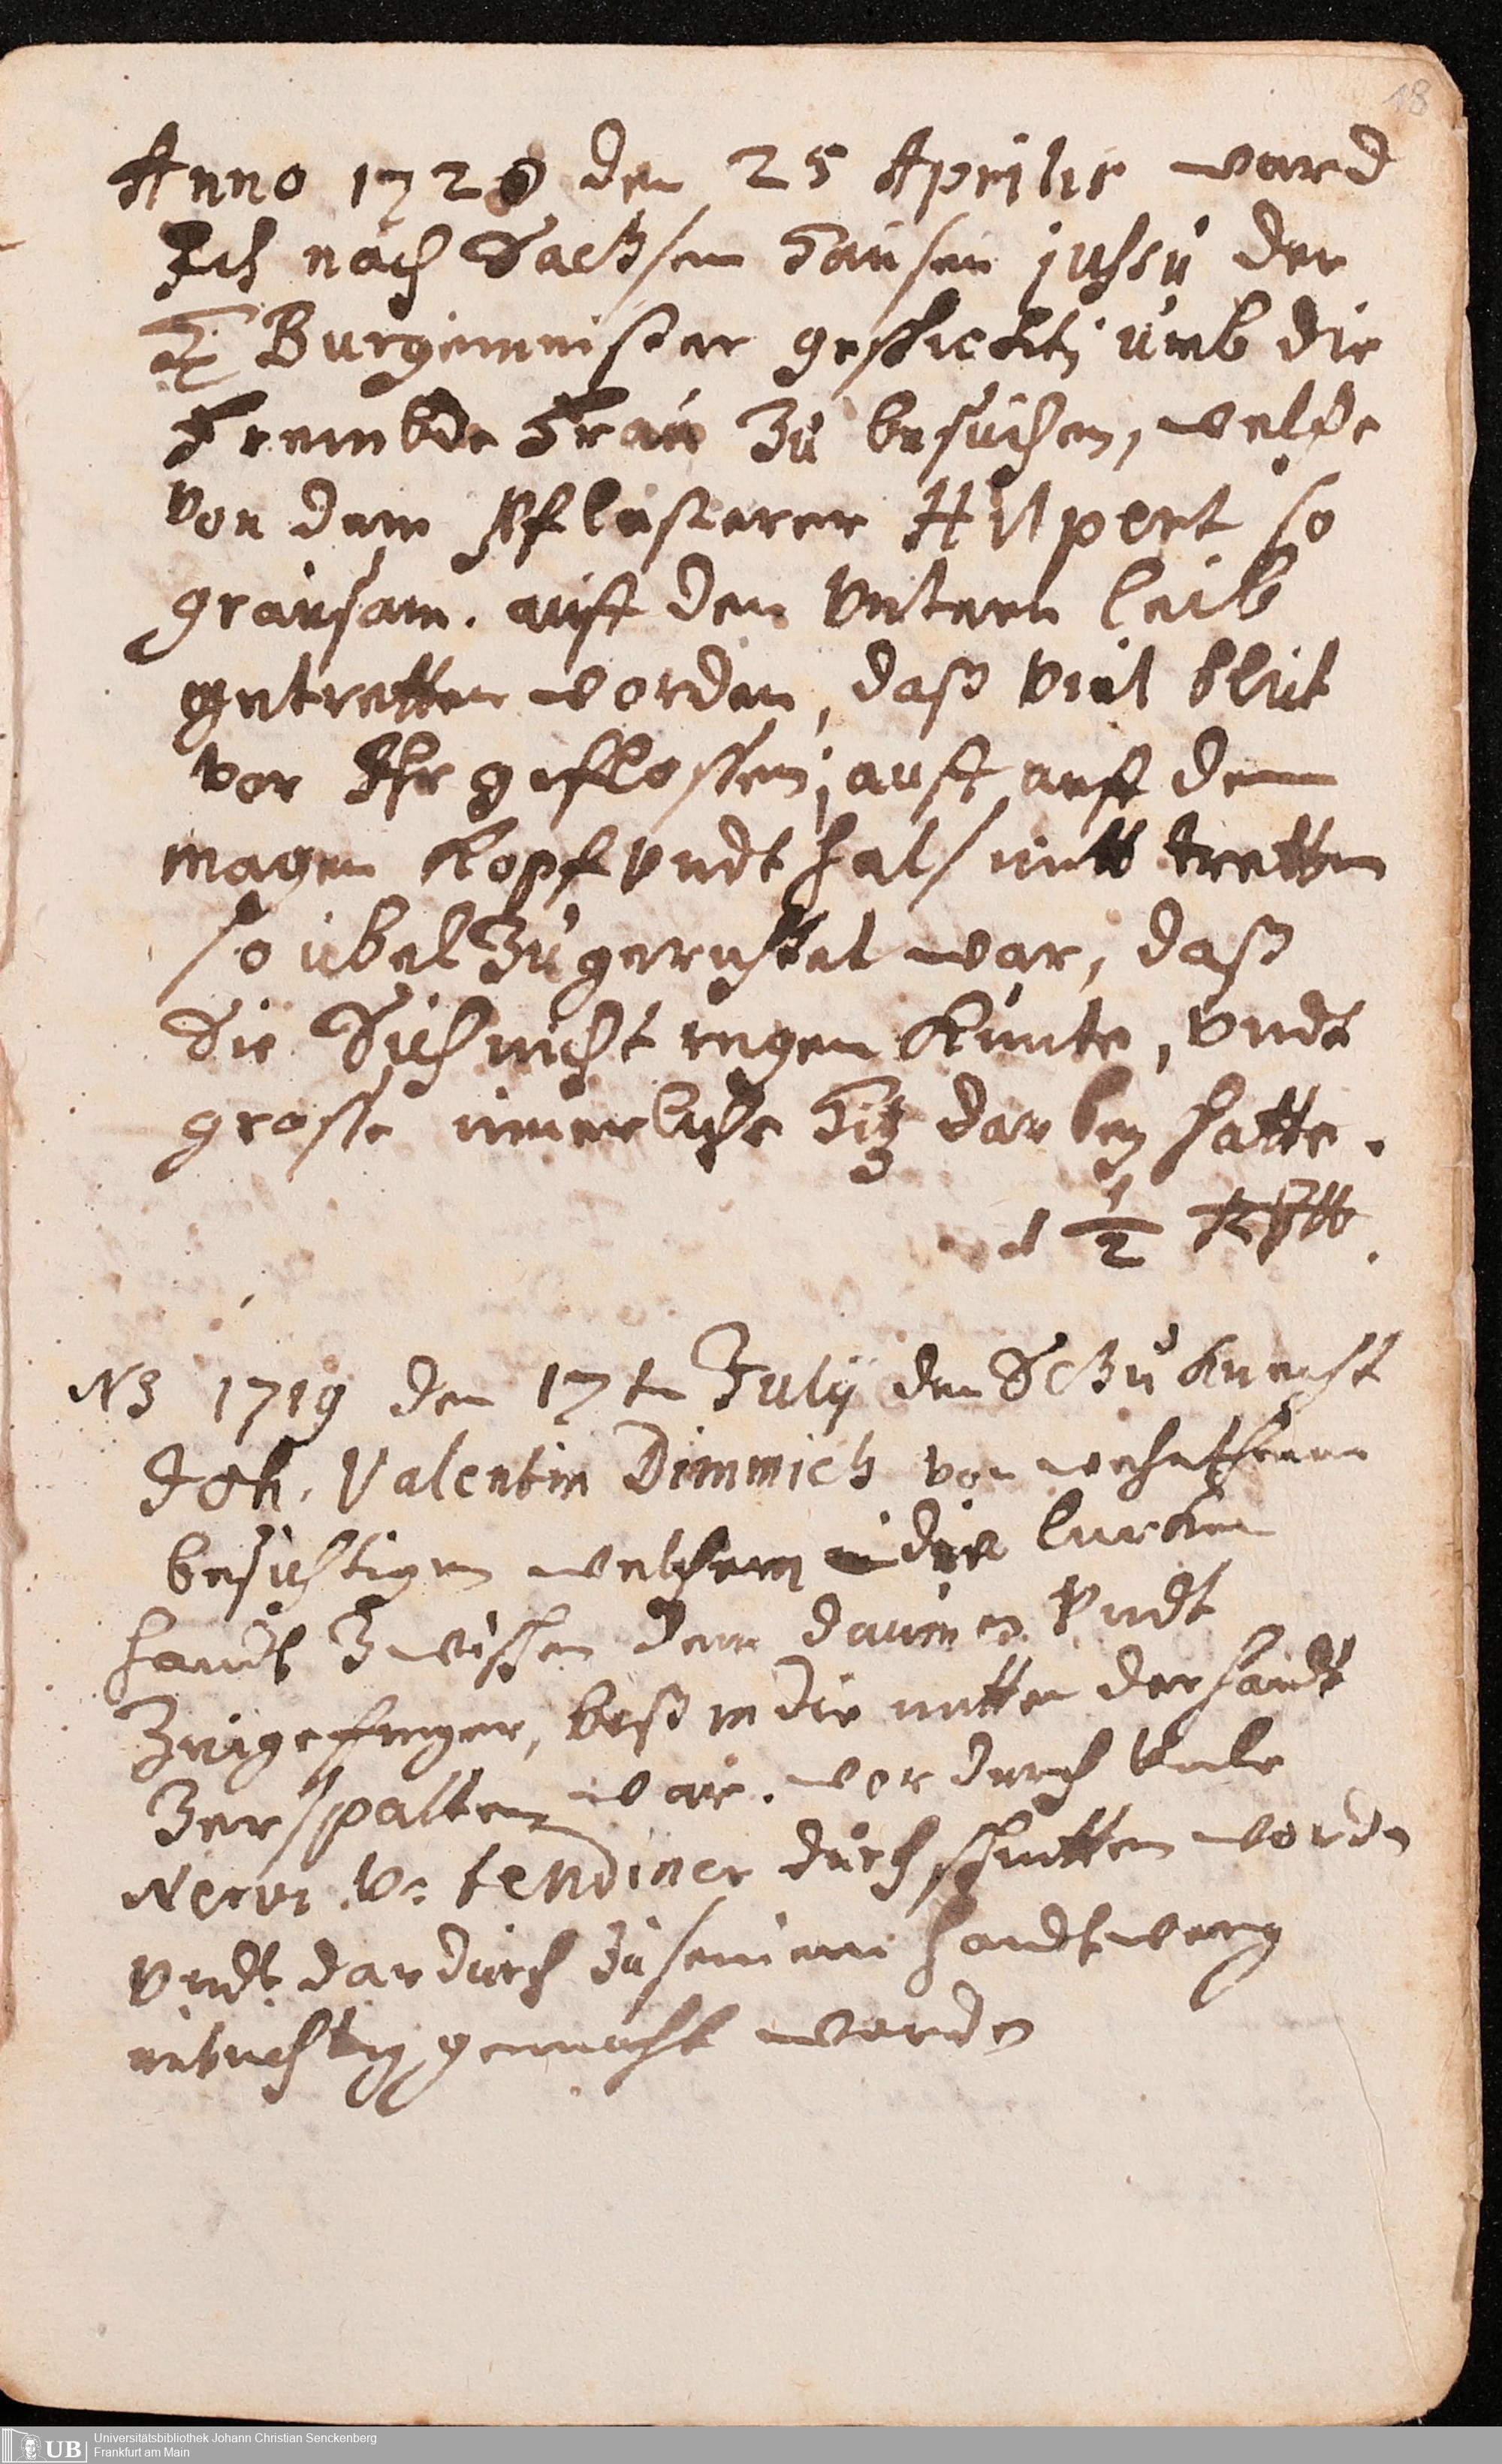 18
Anno 1720 den 25 Aprilis ward
Ich nach Sachsen Hausen jussu der
H Burgemeister geschickt; umb die
Frembde Frau zu besuchen, welche
von dem Pflasterer Hilpert so
grausam. auff den Untern leib
getretten worden, daß viel blut
von Ihr geflossen; auch auff dem
magen Kopf Undt hals mitt tretten
so übel zu gerichtet war, daß
Sie Sich nicht regen Kunte, Undt
grosse innerliche Hitz darbey hatte.
d 1/2
NB 1719 den 17ten July den Schu Knecht
Joh. Valentin Dimmich von
besichtigen welchem die lincken
handt Zwischen dem daumen Undt
Zeigefinger, beß in die mitten der handt
Zerspalten war. wor durch Viele
Nervi V. tendines durch schnitten worden
Undt dardurch zu seinem handtwerg
untüchtig gemacht worden
UB Universitätsbibliothek Johann Christian Senckenberg
Frankfurt am Main